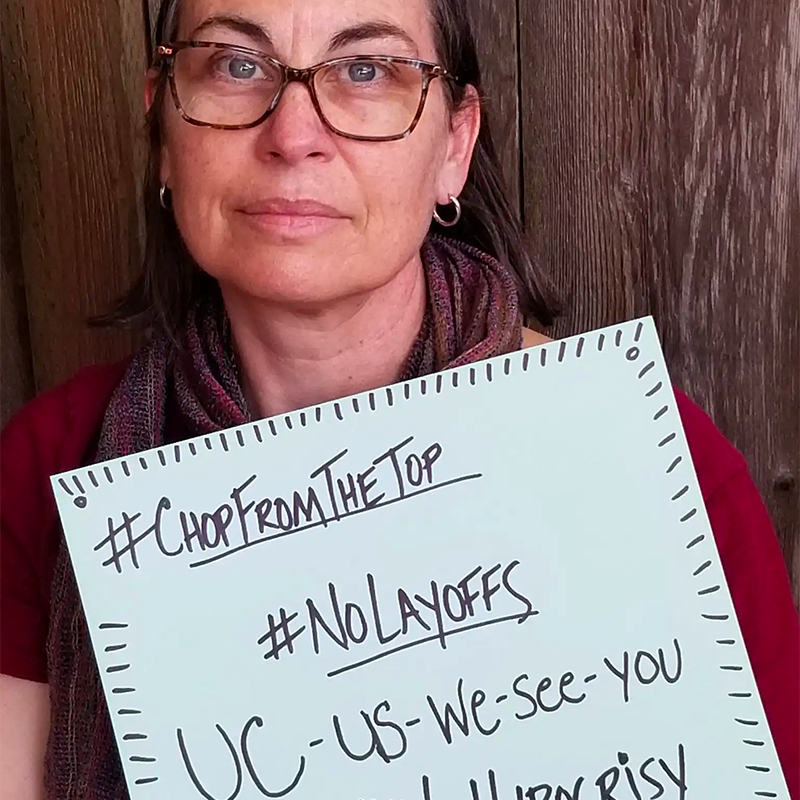 #CHOPFROMTHETOP
#NOLAYOFFS
UC-US-We-See-YOU
HYPOCRISY